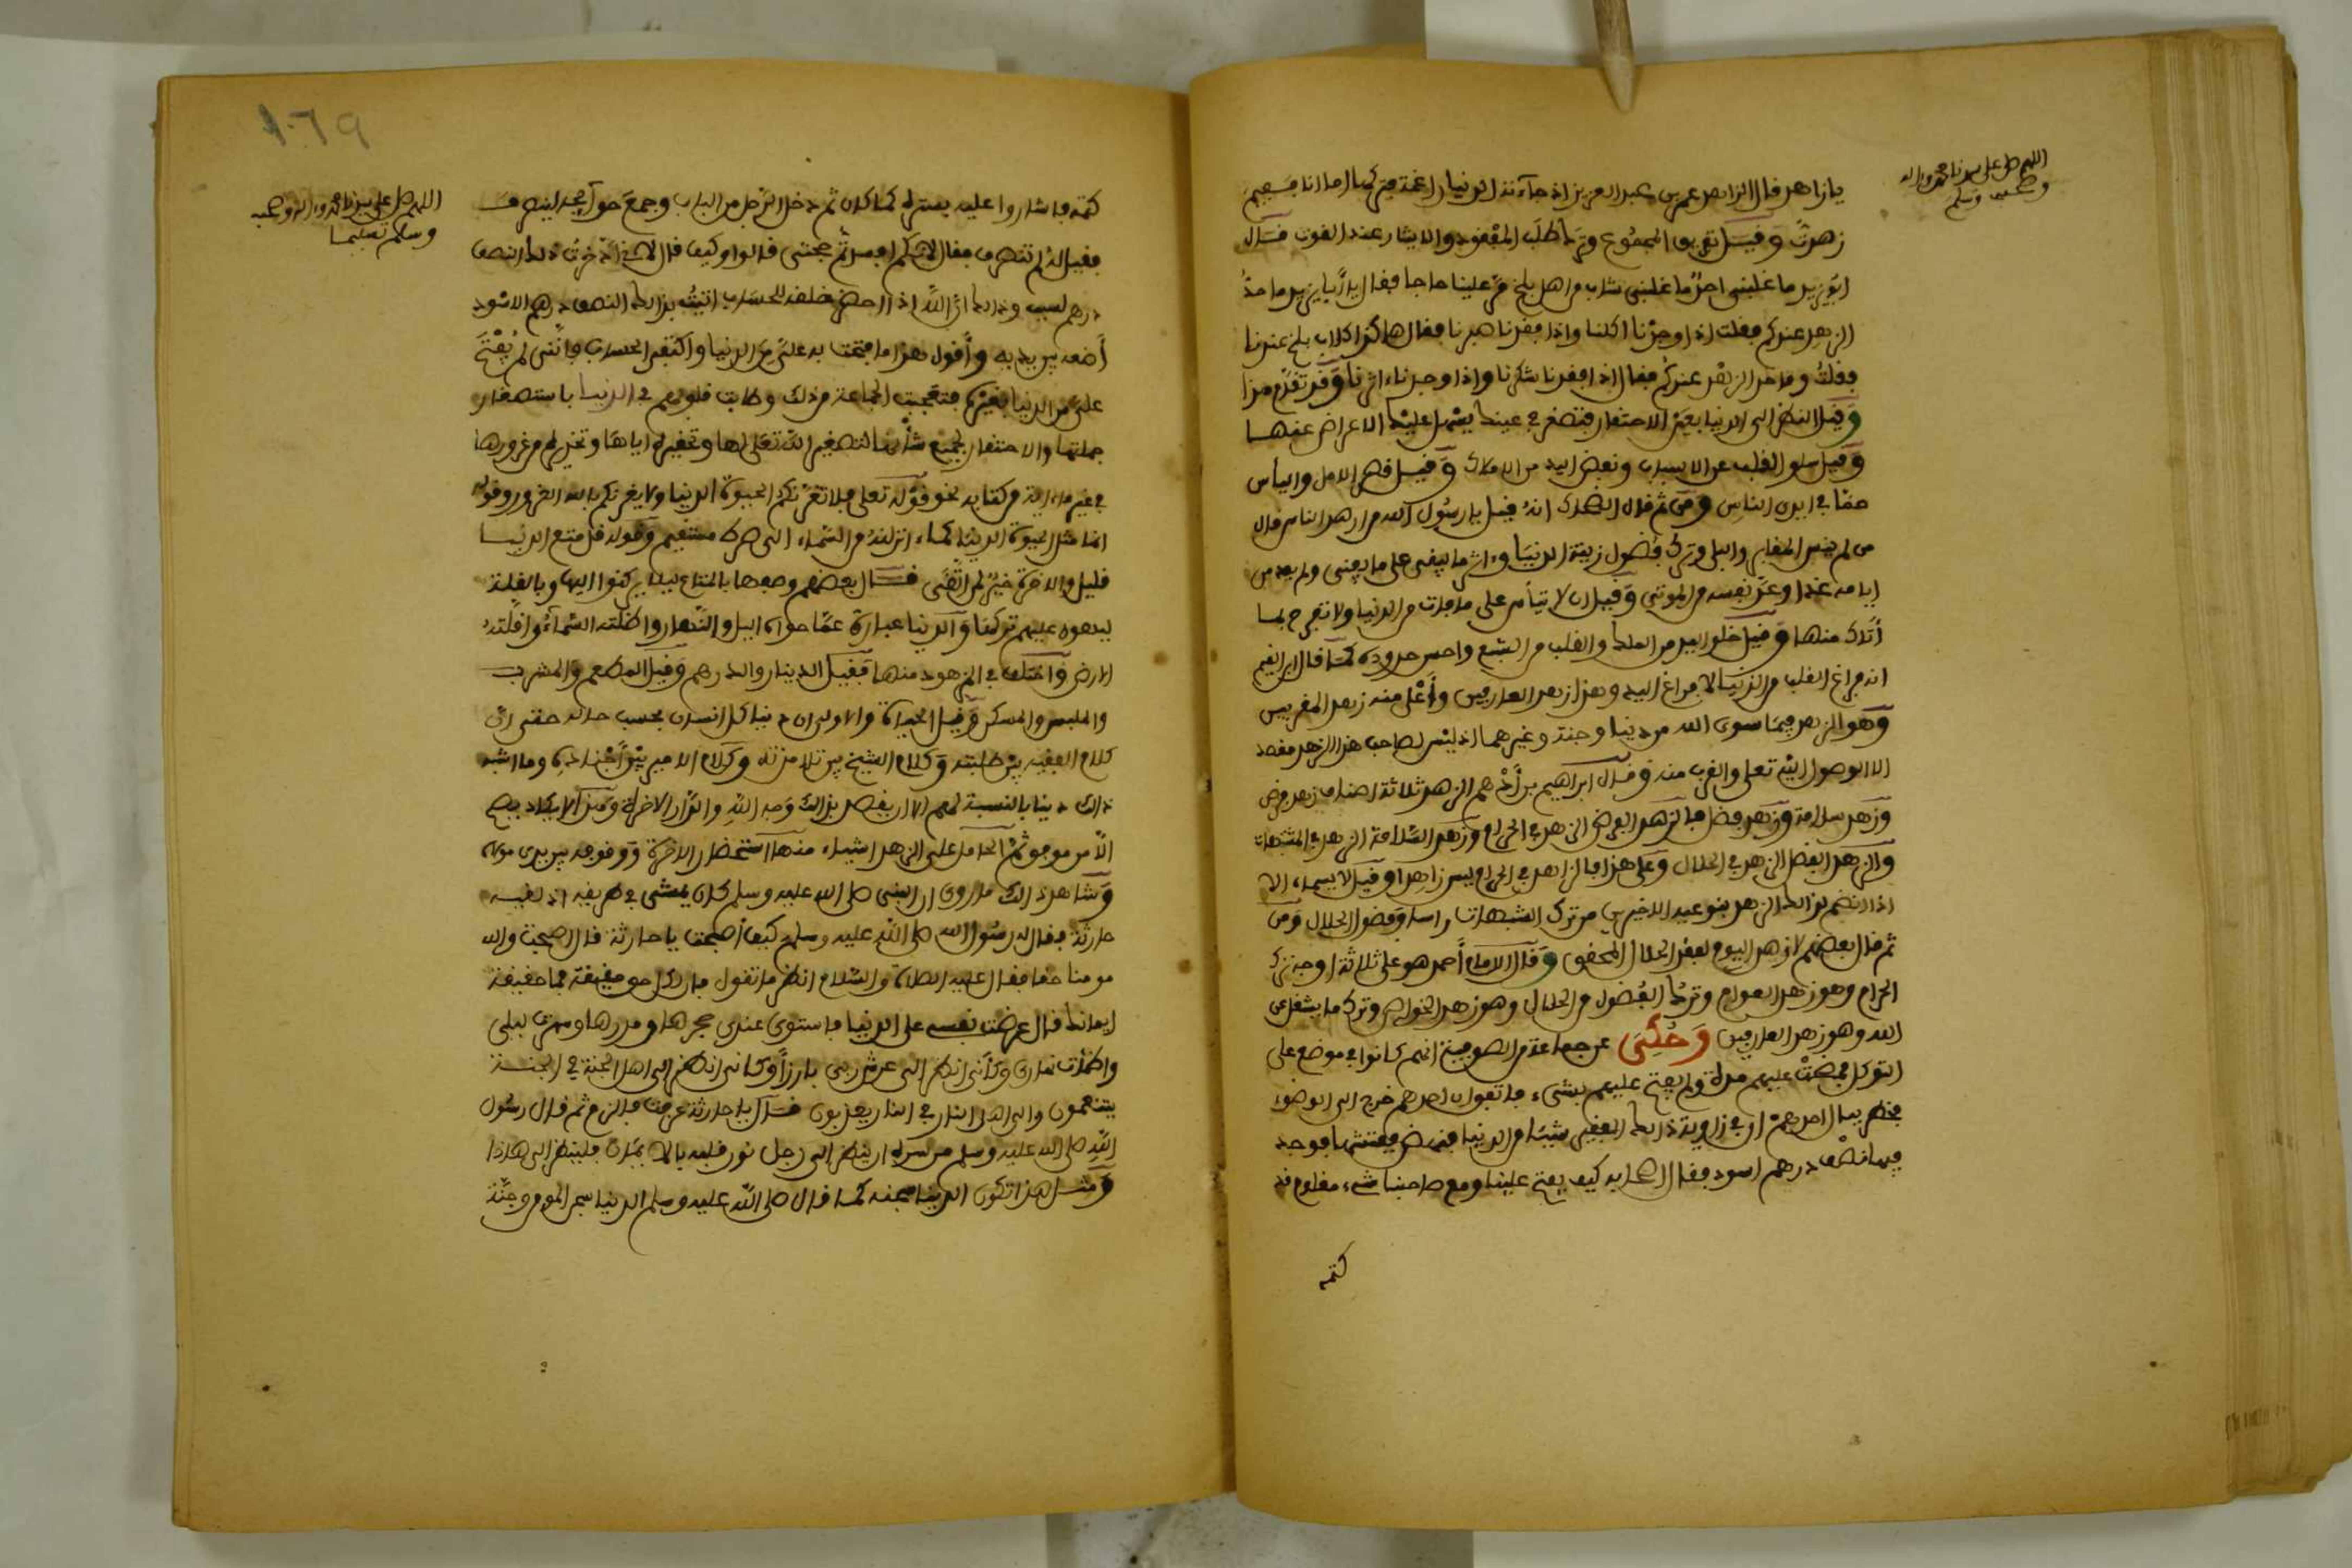 اللهم صل على سيدنا محمد وءاله
وصحبه وسلم
يا زاهد فقال الزاهد عمر بن عبد العزيز اذ جاءته الدنيا راغمة فتركها اما انا ففيم
زهدت وقيل تفريق المجموع وترك طلب المفقود والايثار عند القوت قال
ابو يزيد ما غلبني احد ما غلبني شاب من اهل بلخ مر علينا حاجا فقال يا أبا يزيد ما حد
الزهد عندكم فقلت اذا وجدنا اكلنا واذا فقدنا صبرنا فقال هاكذا كلاب بلخ عندنا
فقلت وما حد الزهد عندكم فقال اذا فقدنا شكرنا واذا وجدنا ءاثرنا وقد تقدم هذا
وقيل النظر الى الدنيا بعين الاحتقار فتصغر في عينك يسهل عليك الاعراض عنها
وقيل سلو القلب عن الاسباب ونفض اليد من الاملاك وقيل قصر الامل والياس
مما في ايدي الناس ومن ثم قال الضحاك انه قيل يا رسول الله من ازهد الناس قال
من لم ينس المقابر والبلى وترك فضول زينة الدنيا وءاثر ما يبقى على ما يفنى ولم يعد من
ايامه غدا وعد نفسه من الموتى وقيل ان لا تيأس على ما فات من الدنيا ولا تفرح بما
أتاك منها وقيل خلو اليد من الملك والقلب من التتبع واحسن حدوده كما قال ابن القيم
انه فراغ القلب من الدنيا لا فراغ اليد وهذا زهد العارفين وأعلى منه زهد المقربين
وهو الزهد فيما سوى الله من دنيا وجنة وغيرهما اذ ليس لصاحب هذا الزهد مقصد
الا الوصول اليه تعلى والقرب منه وقال ابراهيم بن أدهم الزهد ثلاثة اصناف زهد فرض
وزهد سلامة وزهد فضل فالزهد الفرض الزهد في الحرام وزهد السلامة الزهد في المشبهات
والزهد الفضل الزهد في الحلال وعلى هذا فالزاهد في الحرام ليس زاهدا وقيل لا يسماه الا
اذا انضم لذالك الزهد بنوعيه الاخيرين من ترك الشبهات راسا وفضول الحلال ومن
ثم قال بعضهم لا زهد اليوم لفقد الحلال المحقق وقال الامام أحمد هو على ثلاثة اوجه ترك
الحرام وهو زهد العوام وترك الفضول من الحلال وهو زهد الخواص وترك ما يشغل عن
الله وهو زهد العارفين وحُكِيَ عن جماعة من الصوفية انهم كانوا في موضع على
التوكل فمضت عليهم مدة ولم يفتح عليهم بشيء فاتفق ان احدهم خرج الى الوضوء
فخطر ببال احدهم ان في زاوية ذالك الفقير شيئا من الدنيا فنهض ففتشها فوجد
فيها نصف درهم اسود فقال لاصحابه كيف يفتح علينا ومع صاحبنا شيء معلوم قد
كتمه
اللهم صل على سيدنا محمد وءاله وصحبه
وسلم تسليما
كتمه فاشاروا عليه بستره كما كان ثم دخل الرجل من الباب وجمع حوآئجه لينصرف
فقيل له لم تنصرف فقال لانكم افسدتم صحبتي قالوا وكيف قال لاني اذخرت ذلك النصف
درهم لسبب وذالك ان الله اذا احضر خلقه للحساب اتيته بذالك النصف درهم الاسود
أضعه بين يديه وأقول هذا ما فتحت به علي من الدنيا واكتفي الحساب فانني لم يفتح
علي من الدنيا بغيره فتعجبت الجماعة من ذلك وطابت قلوبهم في الدنيا باستصغار
جملتها والاحتقار لجميع شأنها لتصغير الله تعلى لها وتحقيره اياها وتحذيره من غرورها
في غير ما ءاية من كتابه نحو قوله تعلى فلا تغرنكم الحيوة الدنيا ولا يغرنكم بالله الغرور وقوله
انما مثل الحيوة الدنيا كماء انزلنه من السماء الى صرط مستقيم وقوله قل متع الدنيا
قليل والاخرة خير لمن اتقى قال بعضهم وصفها بالمتاع ليلا يركنوا اليها وبالقلة
ليهون عليهم تركها والدنيا عبارة عما حواه اليل والنهار واظلته السماء واقلته
الارض واختلف في المزهود منها فقيل الدينار والدرهم وقيل المطعم والمشرب
والملبس والمسكن وقيل الحياة والاولى ان دنيا كل انسان بحسب حاله حتى ان
كلام الفقيه بين طلبته وكلام الشيخ بين تلامذته وكلام الامير بين أجناده وما اشبه
ذالك دنيا بالنسبة لهم الا ان يقصد بذالك وجه الله والدار الاخرة وهذا لا يكاد يصح
الا من موفق ثم الحامل على الزهد اشياء منها استحضار الاخرة ووقوفه بين يدي مولاه
وشاهد ذالك ما روى ان النبي صلى الله عليه وسلم كان يمشي في طريقه اذ لقيه
حارثة فقال له رسول الله صلى الله عليه وسلم كيف أصبحت يا حارثة قال اصبحت والله
مومنا حقا فقال عليه الصلاة والسلام انظر ما تقول فان لكل حق حقيقة فما حقيقة
ايمانك قال عرضت نفسي على الدنيا فاستوى عندي حجرها ومدرها وسهرت ليلي
واظمأت نهاري وكأني انظر الى عرش ربي بارزا وكاني انظر الى اهل الجنة في الجنة
يتنعمون والى اهل النار في النار يعذبون قال يا حارثة عرفت فالزم ثم قال رسول
الله صلى الله عليه وسلم من سره ان ينظر الى رجل نور قلبه بالايمان فلينظر الى هاذا
ومثل هذا تكون الدنيا سجنه كما قال صلى الله عليه وسلم الدنيا سجن المومن وجنة